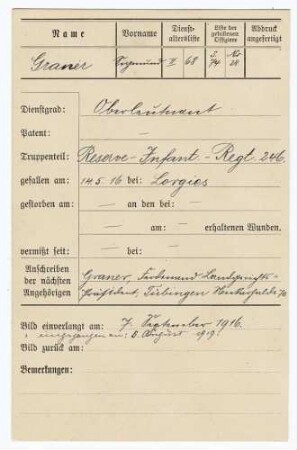 Name Vorname Dienst-altersliste Liste der gefallenen Offiziere Abdruck angefertigt
Graner Sigmund II 68 S. 74 Nr. 28
Dienstgrad: Oberleutnant
Patent: —
Truppenteil: Reserve-Infant.-Regt. 246.
gefallen am: 14.5.16 bei: Lorgies
gestorben am: — an den bei: —
— am: — erhaltenen Wunden.
vermißt seit: — bei: —
Anschreiben der nächsten Angehörigen
Graner, Ferdinand Landgerichts-
präsident, Tübingen
Bild einverlangt am: 7. September 1916.
eingegangen am: 8. August 1919
Bild zurück am:
Bemerkungen: